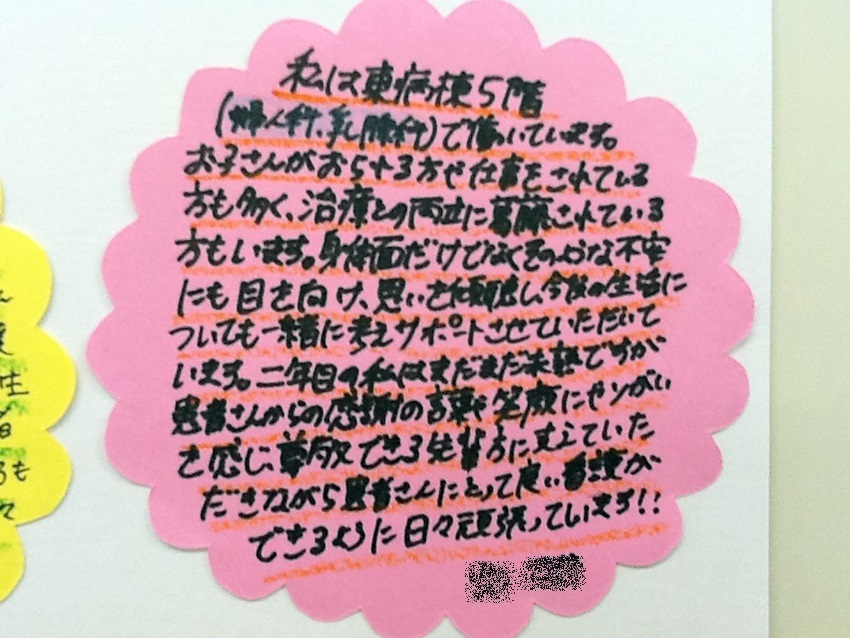 私は東病棟5階
(婦人科、乳腺科)で働いています。
お子さんがおられる方や仕事をされている
方も多く、治療との両立に葛藤されている
方もいます。身体面だけでなくそのような不安
にも目を向け、思いを傾聴し、今後の生活に
ついても一緒に考えサポートさせていただいて
います。二年目の私はまだまだ未熟ですが
患者さんからの感謝の言葉や笑顔にやりがい
を感じ、尊敬できる先輩方に支えていた
だきながら患者さんにとって良い看護が
できるように日々頑張っています!!
性
も
々